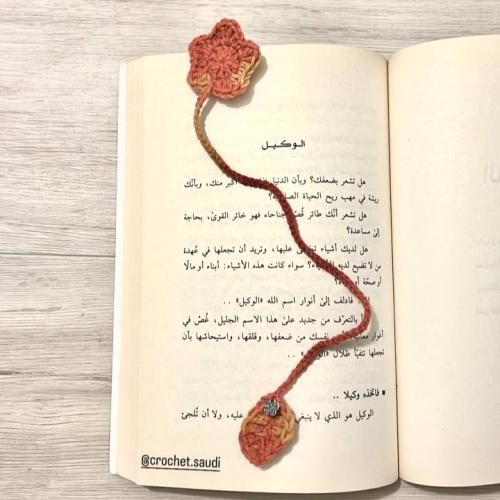 الوكيل
هل تشعر بضعفك؟ وبأن الدنيا أكبر منك، وبأنك
ريشة في مهب ريح الحياة
هل تشعر أنّك طائر قُصّ جناحاه فهو خائر القوىٰ، بحاجة
إلى مساعدة؟
هل لديك أشياء عليها، وتريد أن تجعلها في عُهدة
من لا تضيع لديه سواء كانت هذه الأشياء: أبناء أو مالًا
أو صحّة أو
فادلف إلىٰ أنوار اسم الله «الوكيل» ..
بالتعرّف من جديد علىٰ هذا الاسم الجليل، غُصْ في
أنوار نفسك من ضعفها، وقلقها، واستيحاشها بأن
تجعلها تتفيّأ ظلال «الوكيل» ..
▪ فاتخذه وكيلا ..
الوكيل هو الذي لا ينبغي عليه، ولا أن تُلجئ
@crochet.saudi